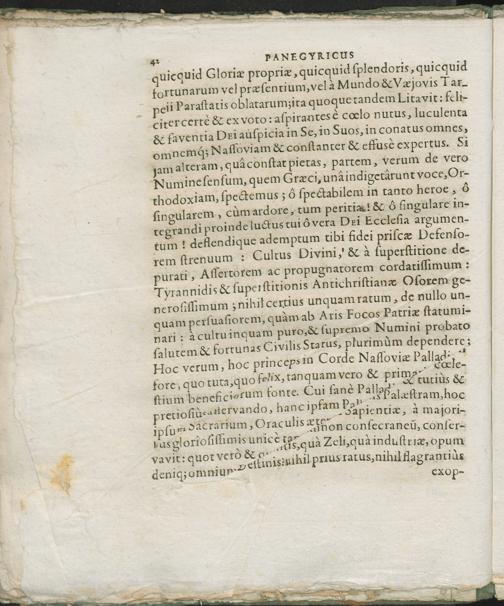 42 PANEGYRICUS
quicquid Gloriæ propriæ, quicquid splendoris, quicquid
fortunarum vel præsentium, vel à Mundo & Væjovis Tar-
peii Parastatis oblatarum; ita quoque tandem Litavit: feli-
citer certè & ex voto: aspirantes è cœlo nutus, luculenta
& faventia DEI auspicia in Se, in Suos, in conatus omnes,
omnemq; Nassoviam & constanter & effusè expertus. Si
jam alteram, quâ constat pietas, partem, verum de vero
Numine sensum, quem Græci, unâ indigetârunt voce, Or-
thodoxiam, spectemus; ô spectabilem in tanto heroe, ô
singularem, cùm ardore, tum peritia! & ô singulare in-
tegrandi proinde luctus tui ô vera DEI Ecclesia argumen-
tum! deflendique ademptum tibi fidei priscæ Defenso-
rem strenuum: Cultus Divini, & à superstitione de-
purati, Assertorem ac propugnatorem cordatissimum:
Tyrannidis & superstitionis Antichristianæ Osorem ge-
nerosissimum; nihil certius unquam ratum, de nullo un-
quam persuasiorem, quàm ab Aris Focos Patriæ statumi-
nari: à cultu inquam puro, & supremo Numini probato
salutem & fortunas Civilis Status, plurimùm dependere;
Hoc verum, hoc princeps in Corde Nassoviæ Palladi
fore, quo tuta, quo felix, tanquam vero & cœle-
stium beneficiorum fonte. Cui sanè & tutiùs &
pretiosiùs asservando, hanc ipsam Palæstram, hoc
ipsum Sacrarium, Oraculis Sapientiæ, à majori-
bus gloriosissimis unicè non consecraneũ, conser-
vavit: quot verò & quà Zeli, quà industriæ, opum
deniq; omnium nihil prius ratus, nihil flagrantiùs
exop-